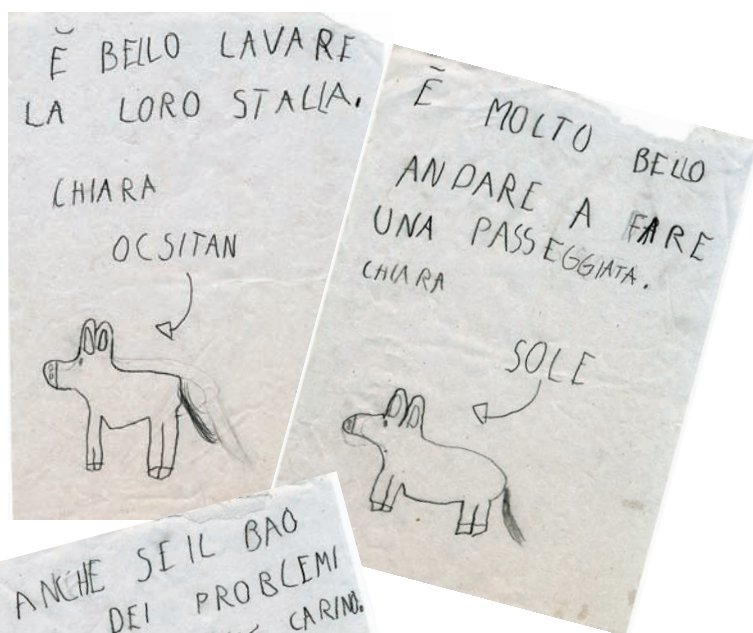 È BELLO LAVARE
LA LORO STALLA.
CHIARA
OCSITAN
È MOLTO BELLO
ANDARE A FARE
UNA PASSEGGIATA.
CHIARA
SOLE
ANCHE SE IL BAO
DEI PROBLEMI
CARINO.